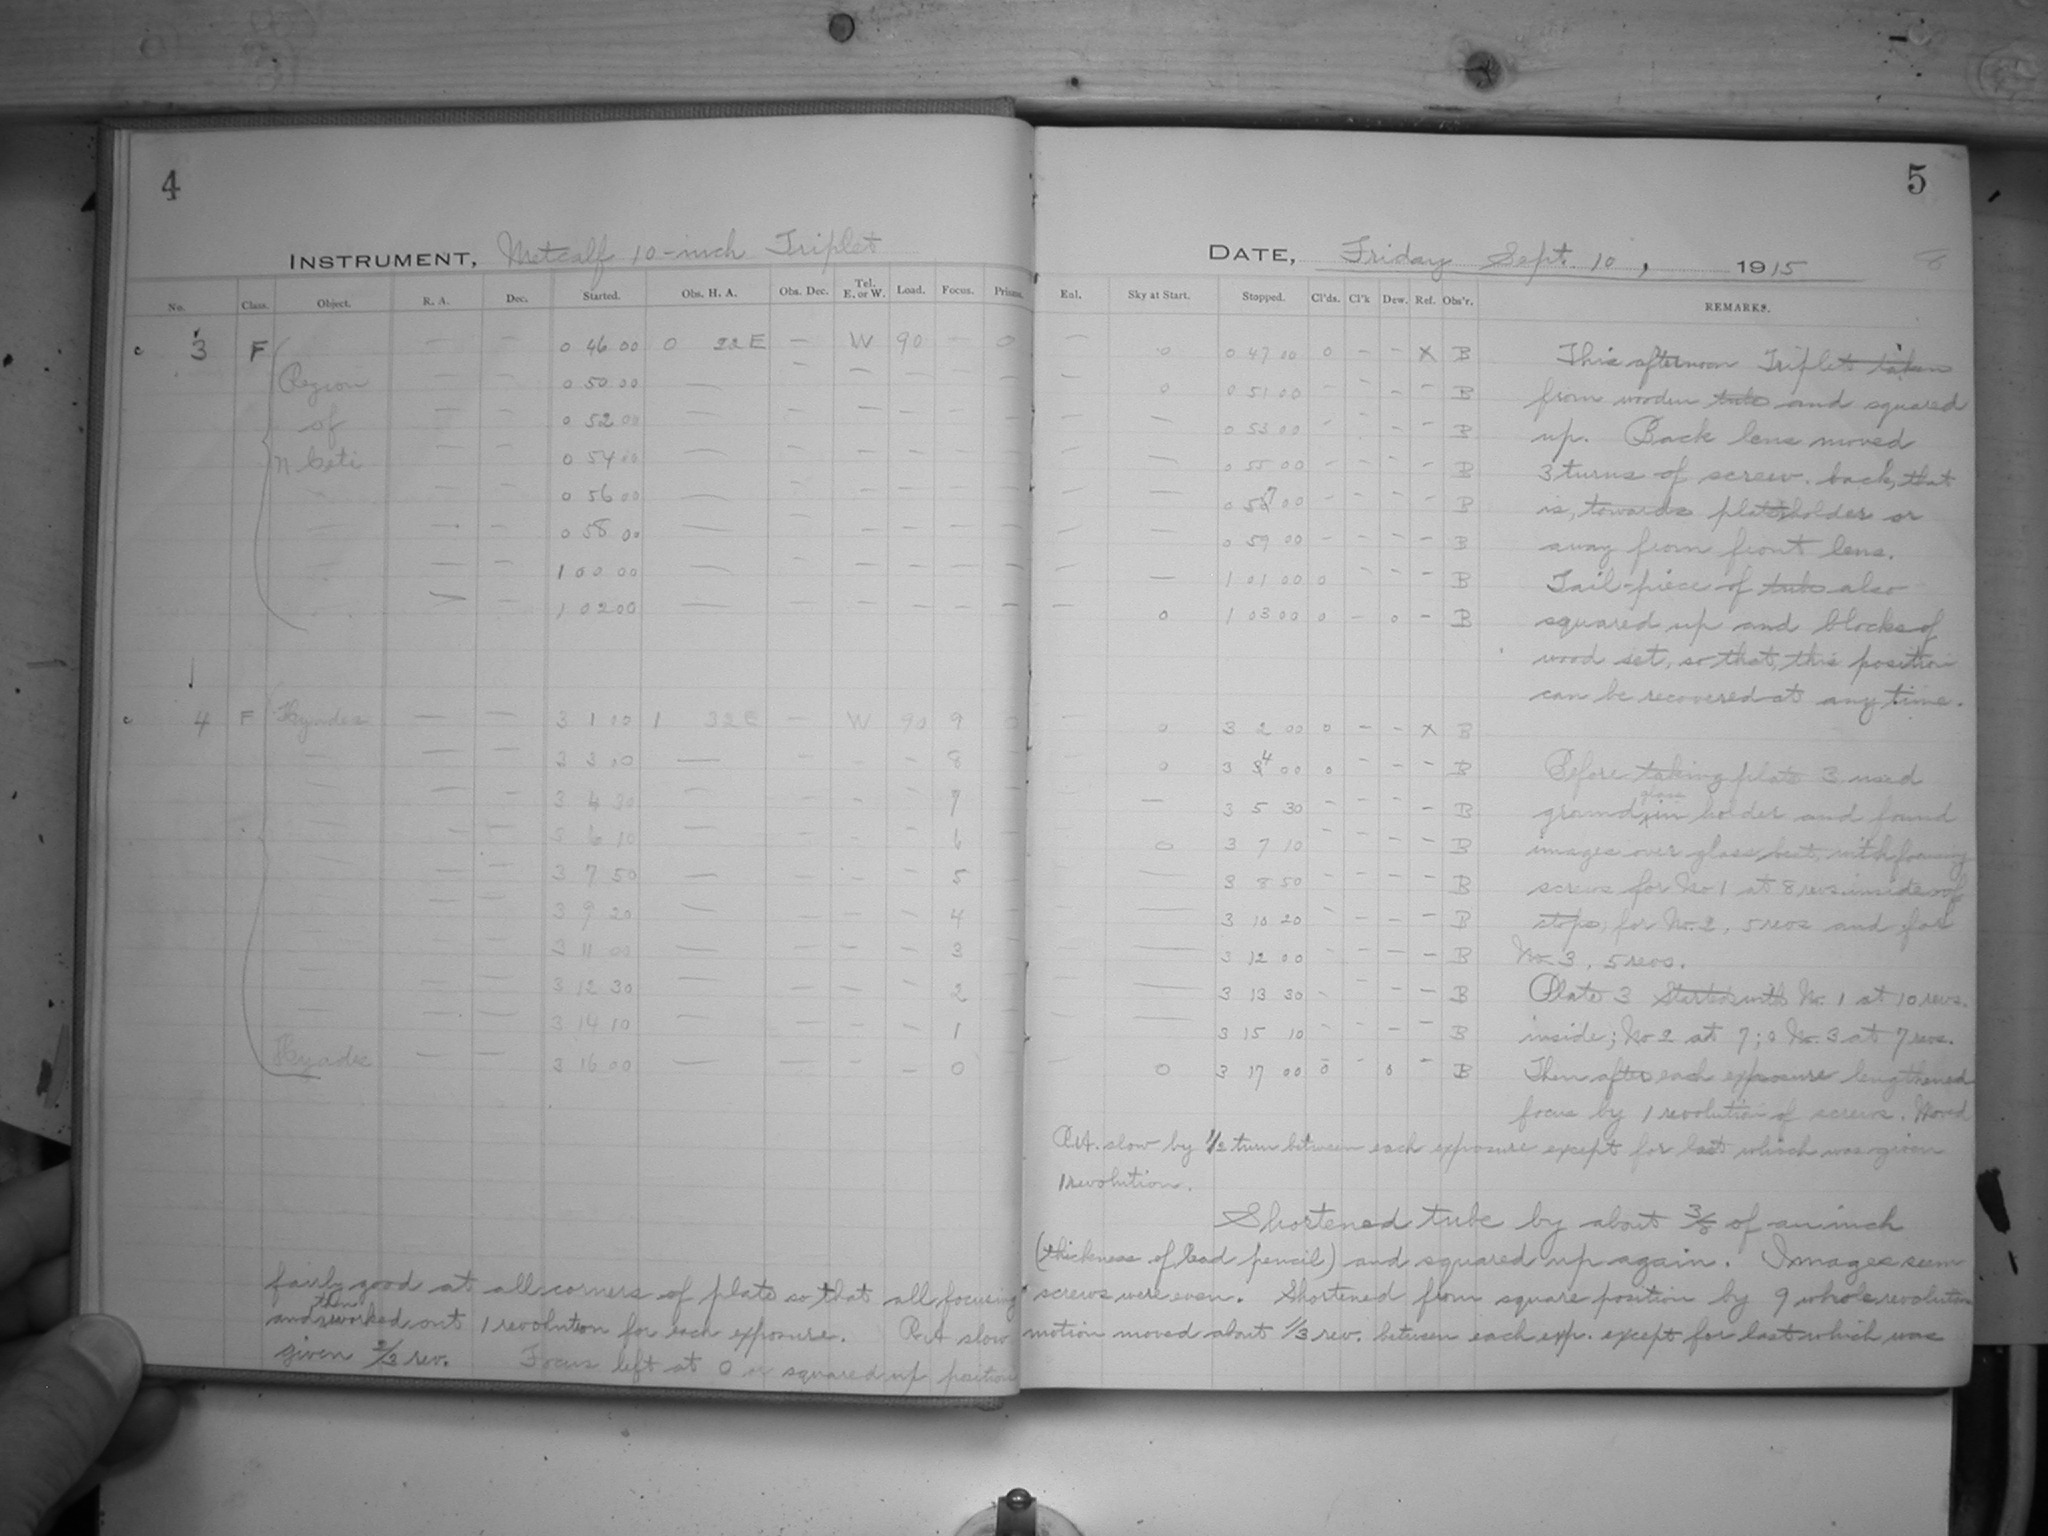 4
INSTRUMENT, Metcalf 10-inch Triplet
No. Class. Object. R. A. Dec. Started. Obs. H. A. Obs. Dec. Tel. E. or W. Load. Focus. Prisms.
c 3 F — — 0 46 00 0 22 E — W 90 — 0
Region — — 0 50 00 — — — — — —
of — — 0 52 00 — — — — — —
η Ceti — — 0 54 00 — — — — — —
— — 0 56 00 — — — — — —
— — — 0 58 00 — — — — — —
— — 1 00 00 — — — — — —
— — 1 02 00 — — — — — —
c 4 F Hyades — — 3 1 00 1 32 E — W 90 9 0
— — — 3 3 00 — — — — 8
— — — 3 4 30 — — — — 7
— — — 3 6 10 — — — — 6
— — — 3 7 50 — — — — 5
— — — 3 9 20 — — — — 4
— — — 3 11 00 — — — — 3
— — — 3 12 30 — — — — 2
— — — 3 14 10 — — — — 1
Hyades — — 3 16 00 — — — — 0
5
DATE, Friday Sept. 10, 1915
Enl. Sky at Start. Stopped. Cl'ds. Cl'k Dew. Ref. Obs'r. REMARKS.
— 0 0 47 00 0 – – X B This afternoon Triplet taken
— 0 0 51 00 – – – – B from wooden tube and squared
— — 0 53 00 – – – – B up. Back lens moved
— — 0 55 00 – – – – B 3 turns of screw back, that
— — 0 57 00 – – – – B is, towards plateholder or
— — 0 59 00 – – – – B away from front lens.
— — 1 01 00 0 – – – B Tail-piece of tube also
— 0 1 03 00 0 – 0 – B squared up and blocks of
wood set, so that, this position
can be recovered at any time.
— 0 3 2 00 0 – – X B
— 0 3 4 00 0 – – – B Before taking plate 3 used
— — 3 5 30 – – – – B ground glass in holder and found
— 0 3 7 10 – – – – B images over glass best, with focusing
— — 3 8 50 – – – – B screws for No 1 at 8 revs. inside of
— — 3 10 20 – – – – B stops, for No. 2, 5 revs and for
— — 3 12 00 – – – – B No. 3, 5 revs.
— — 3 13 30 – – – – B Plate 3 Started with No. 1 at 10 revs.
— — 3 15 10 – – – – B inside; No 2 at 7; No. 3 at 7 revs.
— 0 3 17 00 0 – 0 – B Then after each exposure lengthened
focus by 1 revolution of screws. Moved
R.A. slow by 1/2 turn between each exposure except for last which was given
1 revolution.
Shortened tube by about 3/8 of an inch
(thickness of lead pencil) and squared up again. Images seem
fairly good at all corners of plate so that all focusing screws were even. Shortened from square position by 9 whole revolutions
and then worked out 1 revolution for each exposure. R A slow motion moved about 1/3 rev. between each exp. except for last which was
given 2/3 rev. Focus left at 0 or squared up position